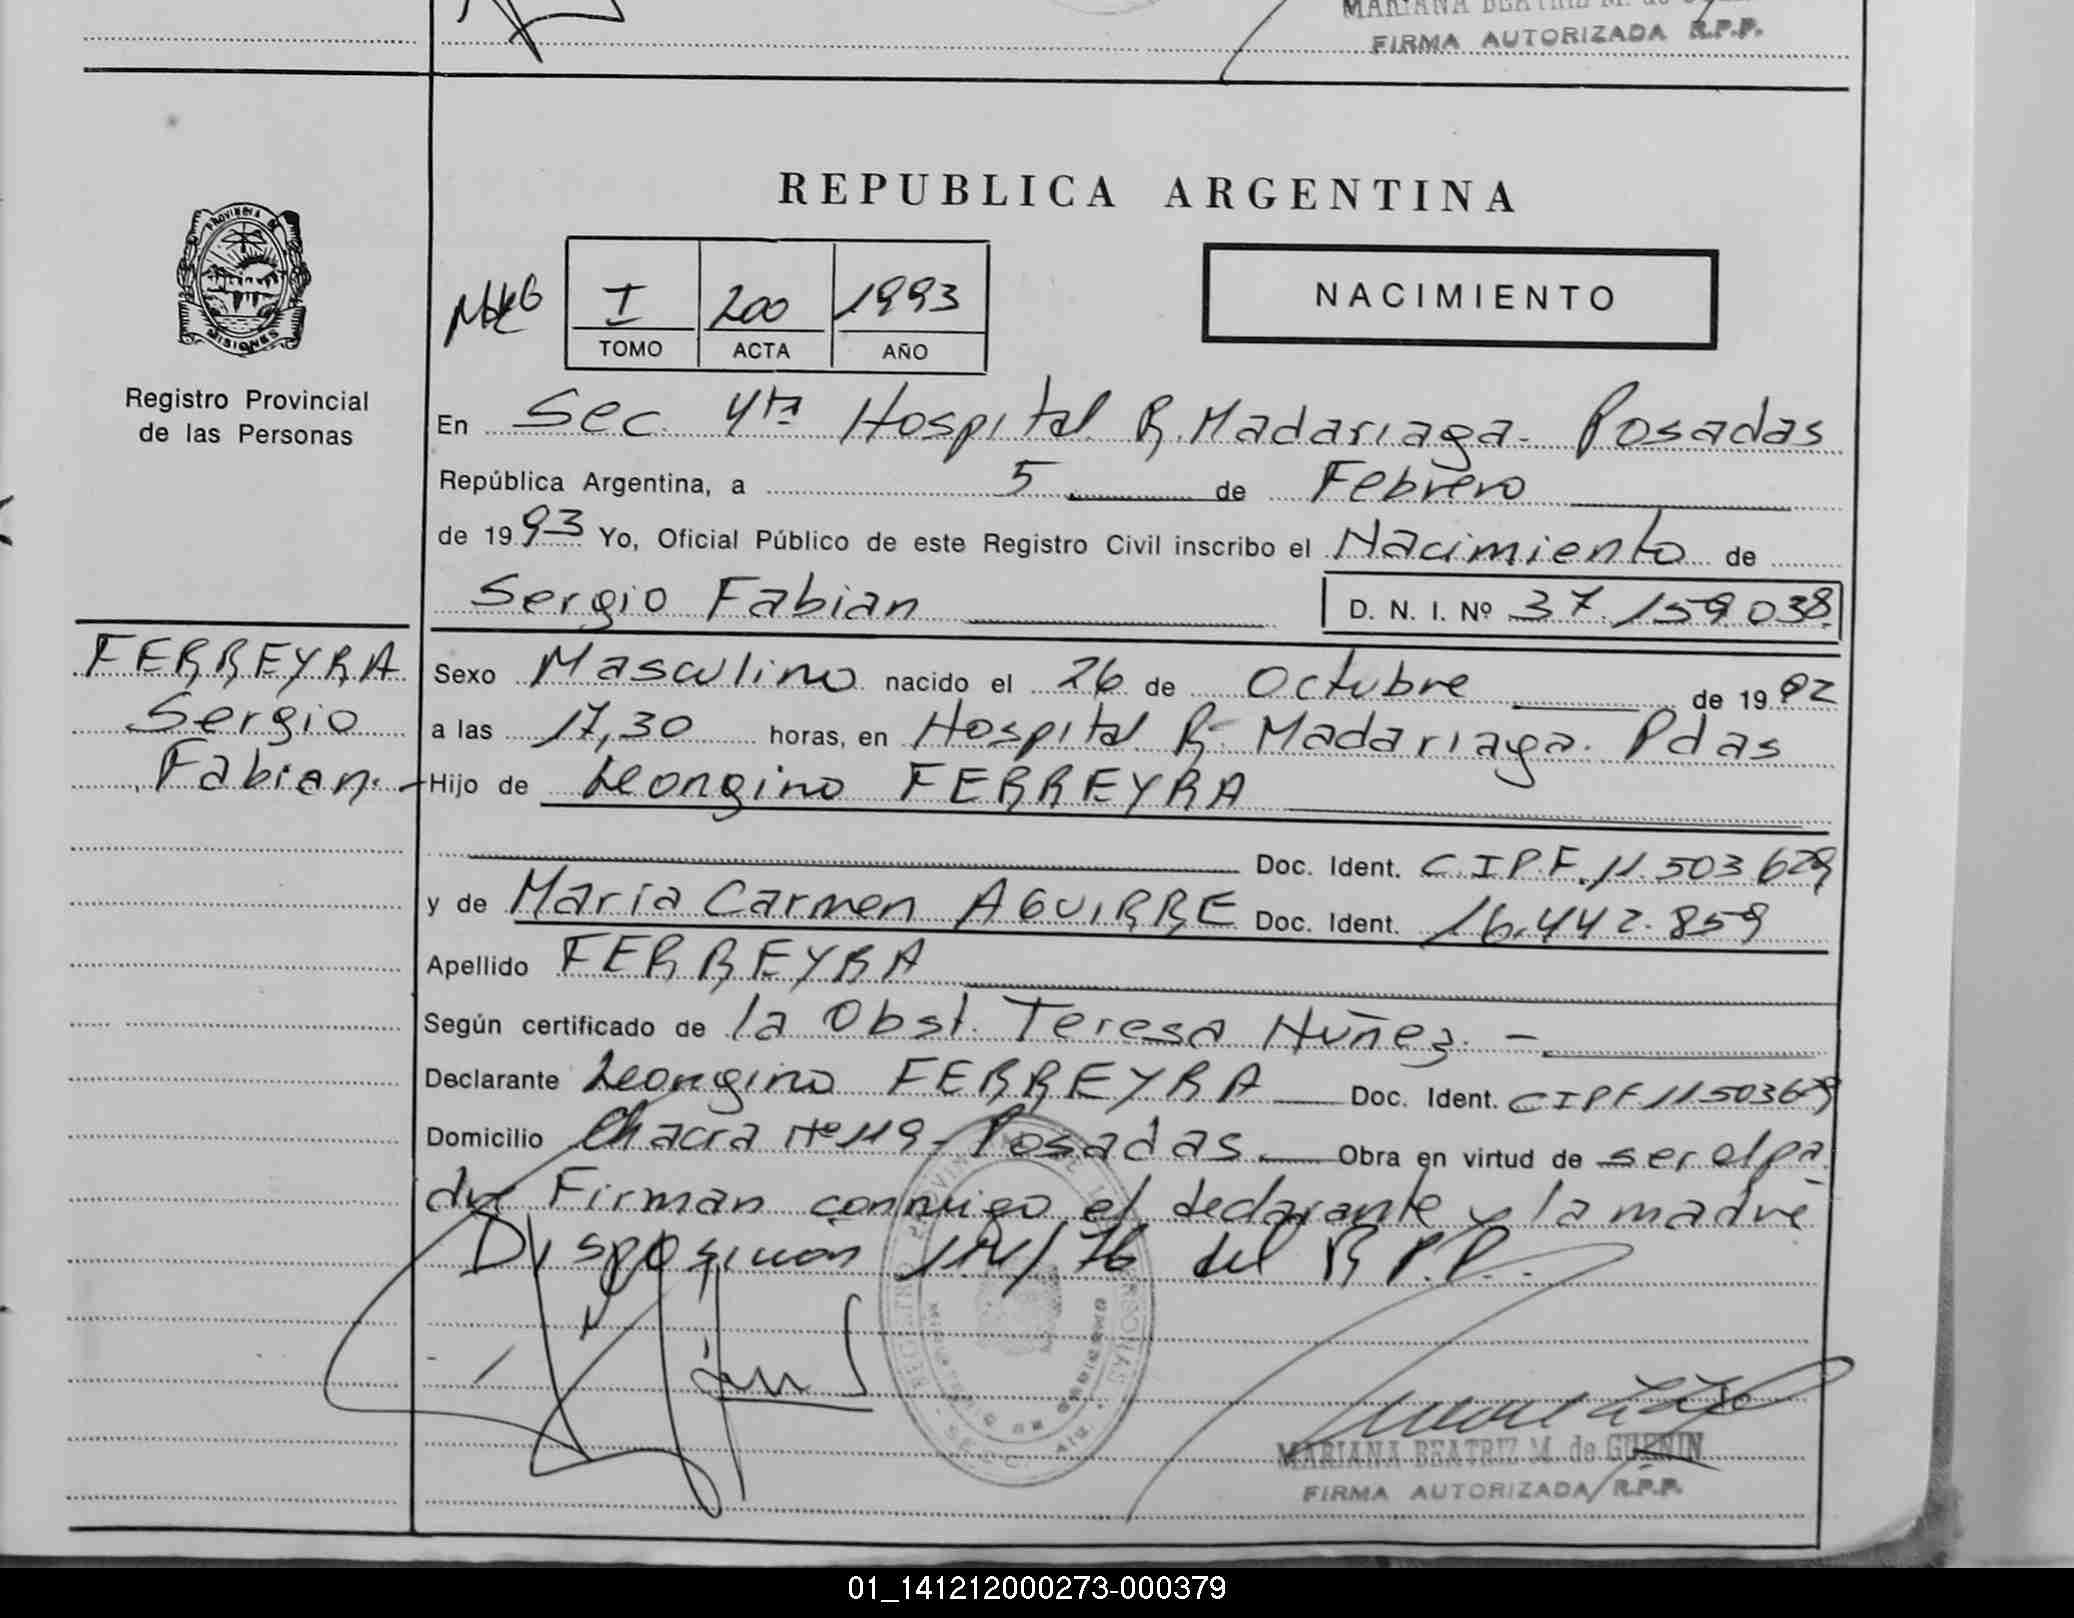 MARIANA BEATRIZ M. de
FIRMA AUTORIZADA R.P.P.
PROVINCIA DE
MISIONES
Registro Provincial
de las Personas
REPUBLICA ARGENTINA
I 200 1993
TOMO ACTA AÑO
NACIMIENTO
En Sec. 4ta Hospital R. Madariaga - Posadas
República Argentina, a 5 de Febrero
de 1993 Yo, Oficial Público de este Registro Civil inscribo el Nacimiento de
Sergio Fabian D. N. I. Nº 37.159.038
FERREYRA
Sergio
Fabian.-
Sexo Masculino nacido el 26 de Octubre de 1992
a las 17,30 horas, en Hospital R. Madariaga. Pdas
Hijo de Leongino FERREYRA
Doc. Ident. C.I.P.F. 11.503.679
y de María Carmen AGUIRRE Doc. Ident. 16.442.859
Apellido FERREYRA
Según certificado de la Obst. Teresa Nuñez. -
Declarante Leongino FERREYRA Doc. Ident. CIPF 11503679
Domicilio Chacra Nº 119 - Posadas Obra en virtud de ser el pa
dre Firman conmigo el declarante y la madre
Disposicion 114/76 del R.P.P.
MARIANA BEATRIZ M. de GUENIN
FIRMA AUTORIZADA R.P.P.
01_141212000273-000379